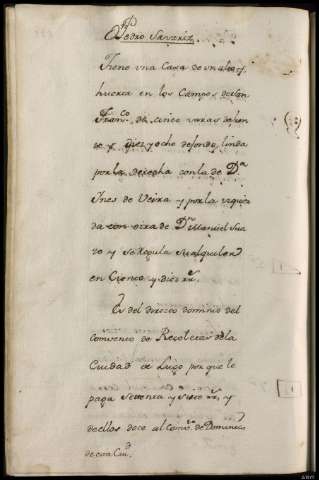 Pedro Savariz.
Tiene una Casa de un alto y
huerta en los Campos de San
Franco. de cinco varas de fren
te y diez y ocho de fondo, linda
por la derecha con la de Da.
Ines de Veira y por la izquier
da con otra de Dn. Manuel Sua
so y se regula su alquiler
en Ciento y diez rrs.
Es del directo dominio del
Combento de Recoletas de la
Ciudad de Lugo por que le
paga Setenta y siete rrs. y
de ellos doce al Conto. de Dominicas
de esta Ciud.